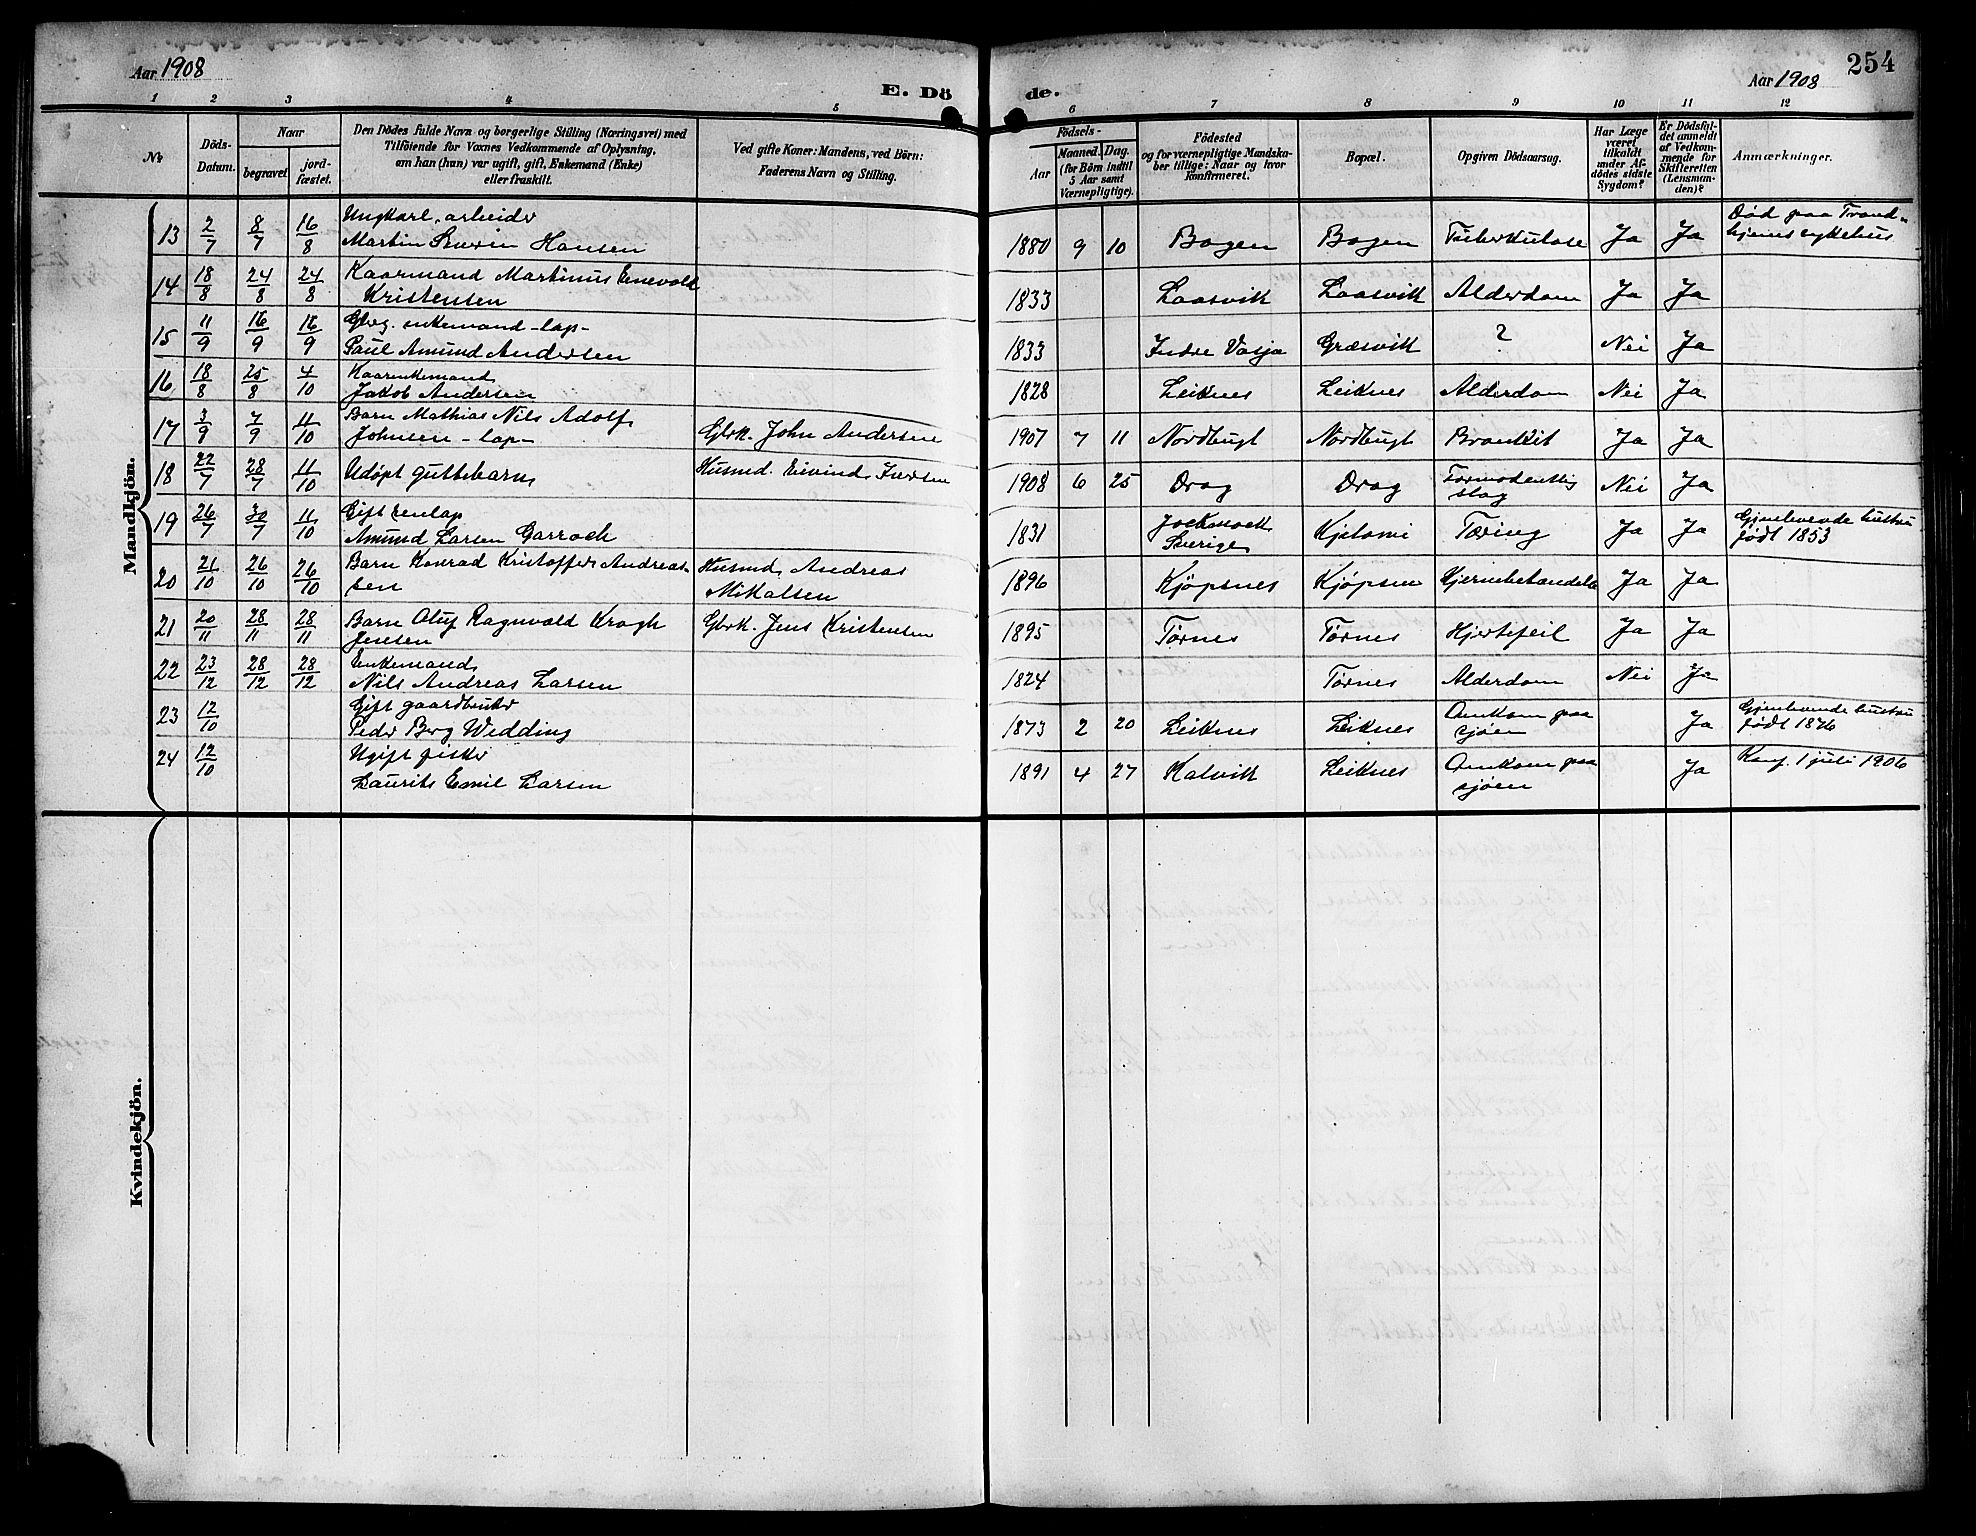 Aar 1908
254
Aar 1908
E. Döde.
1 2 3 4 5 6 7 8 9 10 11 12
No
Döds-Datum.
Naar
begravet
jordfæstet.
Den Dödes fulde Navn og borgerlige Stilling (Næringsvei) med
Tilföiende for Voxnes Vedkommende af Oplysning,
om han (hun) var ugift, gift, Enkemand (Enke)
eller fraskilt.
Ved gifte Koner: Mandens, ved Börn:
Faderens Navn og Stilling.
Födsels-
Aar
Maaned. Dag.
(for Börn indtil
5 Aar samt
Værnepligtige).
Födested
og for værnepligtige Mandska-
ber tillige: Naar og hvor
konfirmeret.
Bopæl.
Opgiven Dödsaarsag.
Har Læge
været
tilkaldt
under Af-
dödes sidste
Sygdom?
Er Dödsfal-
det anmeldt
af Vedkom-
mende for
Skifteretten
(Lensman-
den)?
Anmærkninger.
Mandkjön.
13 2/7 8/7 16/8 Ungkarl, arbeider
Martin Severin Hansen 1880 9 10 Bogen Bogen Tuberkulose Ja Ja Död paa Trond-
hjems sykehus
14 18/8 24/8 24/8 Kaarmand Martinus Enevold
Kristensen 1833 Laasvik Laasvik Alderdom Ja Ja
15 11/9 16/9 16/9 Gbrg. enkemand - lap -
Paul Amund Andersen 1833 Indre Græsvik ? Nei Ja
16 18/8 25/8 4/10 Kaarenkemand
Jakob Andersen 1828 Leiknes Leiknes Alderdom Nei Ja
17 3/9 7/9 11/10 Barn Mathias Nils Adolf
Johnsen - lap - Gbrk. John Andersen 1907 7 11 Nordbugt Nordbugt Bronkit Ja Ja
18 22/7 28/7 11/10 Udöpt guttebarn Husmd. Eivind Iversen 1908 6 25 Drag Drag Formodentlig
slag Nei Ja
19 26/7 30/7 11/10 Gift renlap
Amund Larsen Garroch 1831 Jockmock
Sverige Kjelomi Tæring Ja Ja Gjenlevende hustru
födt 1853
20 21/10 26/10 26/10 Barn Konrad Kristoffer Andreas-
sen Husmd. Andreas
Mikalsen 1896 Kjöpsnes Kjöpsnes Ja Ja
21 20/11 28/11 28/11 Barn Oluf Ragnvald Krogh
Jensen Gbrk. Jens Kristensen 1895 Tørnes Tørnes Hjertefeil Ja Ja
22 23/12 28/12 28/12 Enkemand
Nils Andreas Larsen 1824 Tørnes Alderdom Nei Ja
23 12/10 Gift gaardbruker
Peder Berg Wedding 1873 2 20 Leiknes Leiknes Omkom paa
sjöen Ja Gjenlevende hustru
födt 1876
24 12/10 Ugift fisker
Laurits Emil Larsen 1891 4 27 Kalvik Leiknes Omkom paa
sjöen Ja Konf. 1 juli 1906
Kvindekjön.